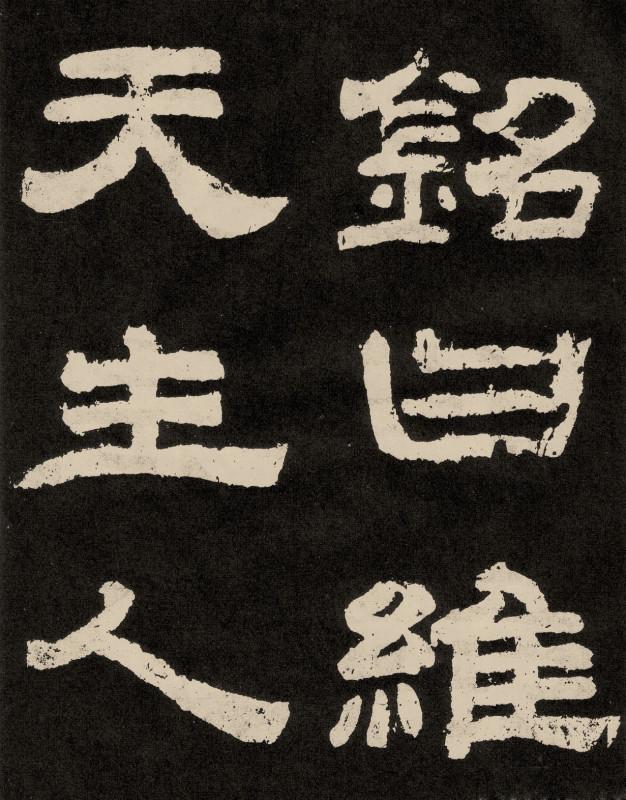 銘曰維
天生人